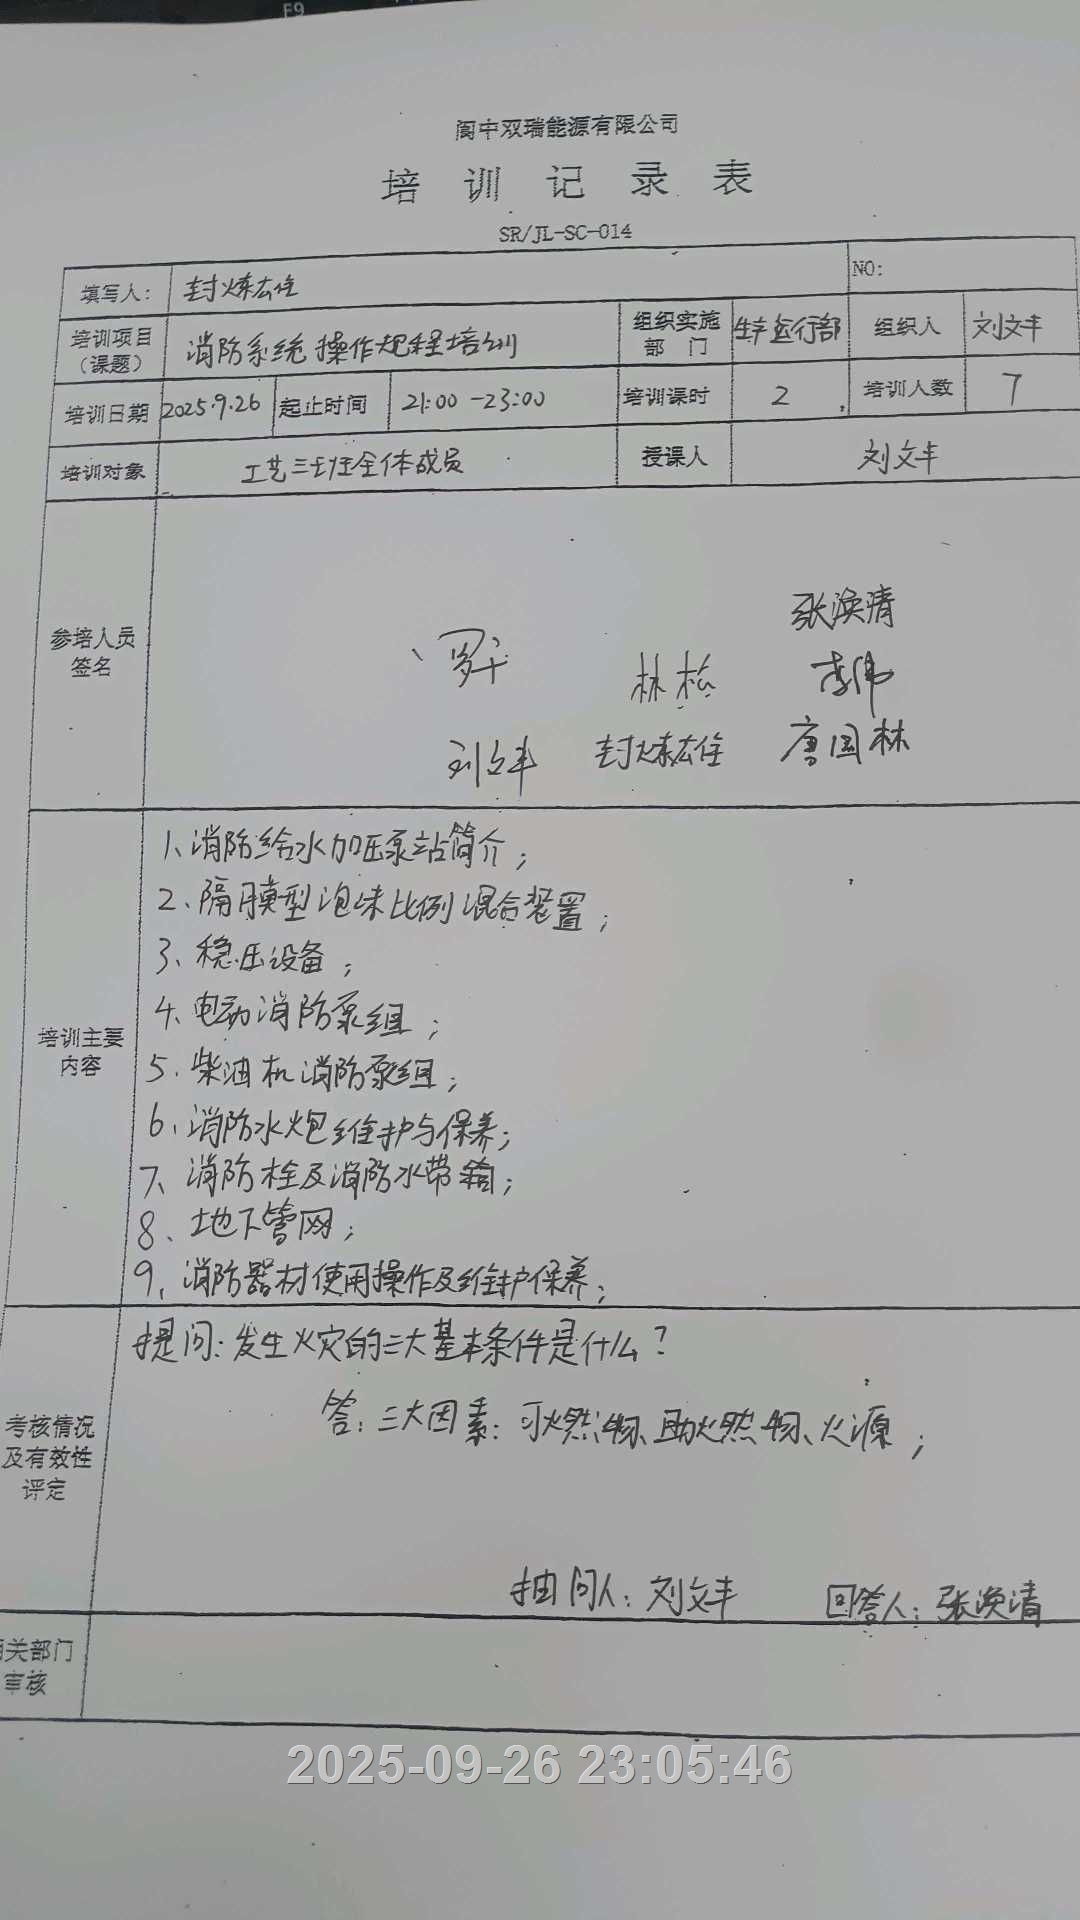 F9
阆中双瑞能源有限公司
培训记录表
SR/JL-SC-014
填写人： 封炼宏佳 NO:
培训项目（课题） 消防系统操作规程培训 组织实施部门 生产运行部 组织人 刘文丰
培训日期 2025.9.26 起止时间 21:00-23:00 培训课时 2 培训人数 7
培训对象 工艺三班全体成员 授课人 刘文丰
参培人员签名
张涣清
林松 李伟
刘文丰 封炼宏佳 唐国林
培训主要内容
1、消防给水加压泵站简介；
2、隔膜型泡沫比例混合装置；
3、稳压设备；
4、电动消防泵组；
5.柴油机消防泵组；
6.消防水炮维护与保养；
7、消防栓及消防水带箱；
8、地下管网；
9、消防器材使用操作及维护保养；
考核情况及有效性评定
提问：发生火灾的三大基本条件是什么？
答：三大因素：可燃物、助燃物、火源；
抽问人：刘文丰 回答人：张涣清
关部门审核
2025-09-26 23:05:46